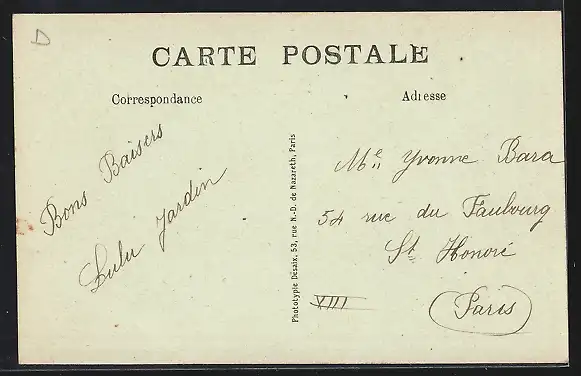 D
CARTE POSTALE
Correspondance
Adresse
Bons Baisers
Lulu Jardin
Phototypie Désaix, 53, rue N.-D. de Nazareth, Paris
Me Yvonne Bara
54 rue du Faubourg
St Honoré
XIII
(Paris)